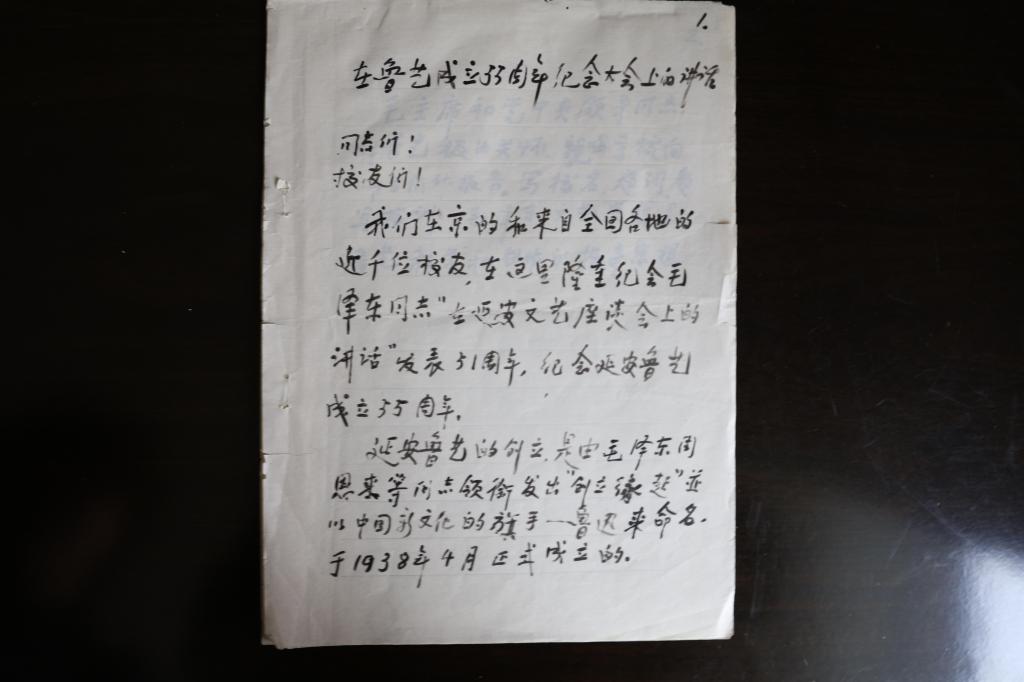 1.
在鲁艺成立55周年纪念大会上的讲话
同志们！
校友们！
我们在京的和来自全国各地的
近千位校友，在这里隆重纪念毛
泽东同志"在延安文艺座谈会上的
讲话"发表51周年，纪念延安鲁艺
成立55周年。
延安鲁艺的创立，是由毛泽东周
恩来等同志领衔发出"创立缘起"並
以中国新文化的旗手—鲁迅来命名.
于1938年4月正式成立的。